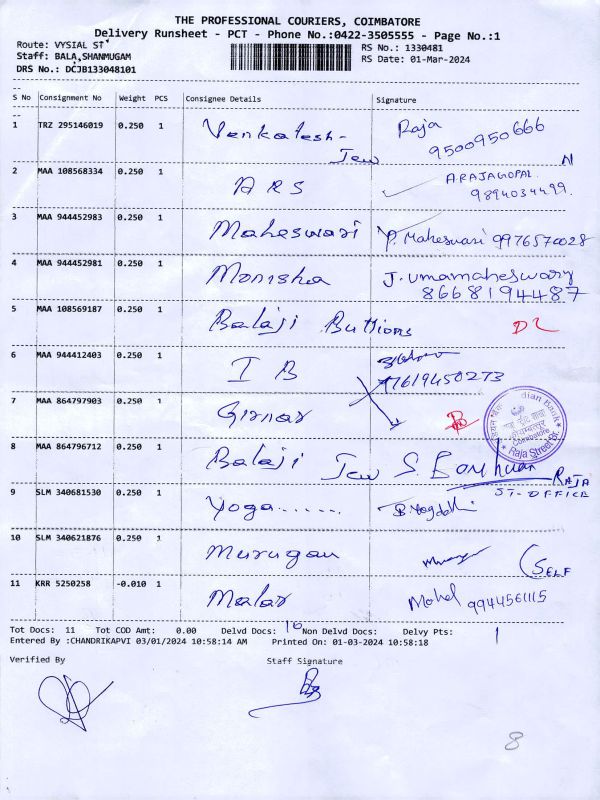 THE PROFESSIONAL COURIERS, COIMBATORE
Delivery Runsheet - PCT - Phone No.:0422-3505555 - Page No.:1
Route: VYSIAL ST
RS No.: 1330481
Staff: BALA,SHANMUGAM
RS Date: 01-Mar-2024
DRS No.: DCJB133048101
S No Consignment No Weight PCS Consignee Details Signature
1 TRZ 295146019 0.250 1 Venkatesh- Jew Raja
9500950666
2 MAA 108568334 0.250 1 ARS A.RAJAGOPAL
9894034499
3 MAA 944452983 0.250 1 Maheswari P. Maheswari 9976570028
4 MAA 944452981 0.250 1 Monisha J. Umamaheswary
8668194487
5 MAA 108569187 0.250 1 Balaji Buttions DL
6 MAA 944412403 0.250 1 I B
7619450273
7 MAA 864797903 0.250 1 Girnar
Indian Bank
Coimbatore
Raja Street Br.
8 MAA 864796712 0.250 1 Balaji Jew RAJA
ST-OFFICE
9 SLM 340681530 0.250 1 Yoga.......
10 SLM 340621876 0.250 1 Murugan
(SELF
11 KRR 5250258 -0.010 1 Malar Mohel 9944561115
Tot Docs: 11 Tot COD Amt: 0.00 Delvd Docs: 10 Non Delvd Docs: Delvy Pts: 1
Entered By :CHANDRIKAPVI 03/01/2024 10:58:14 AM Printed On: 01-03-2024 10:58:18
Verified By Staff Signature
8